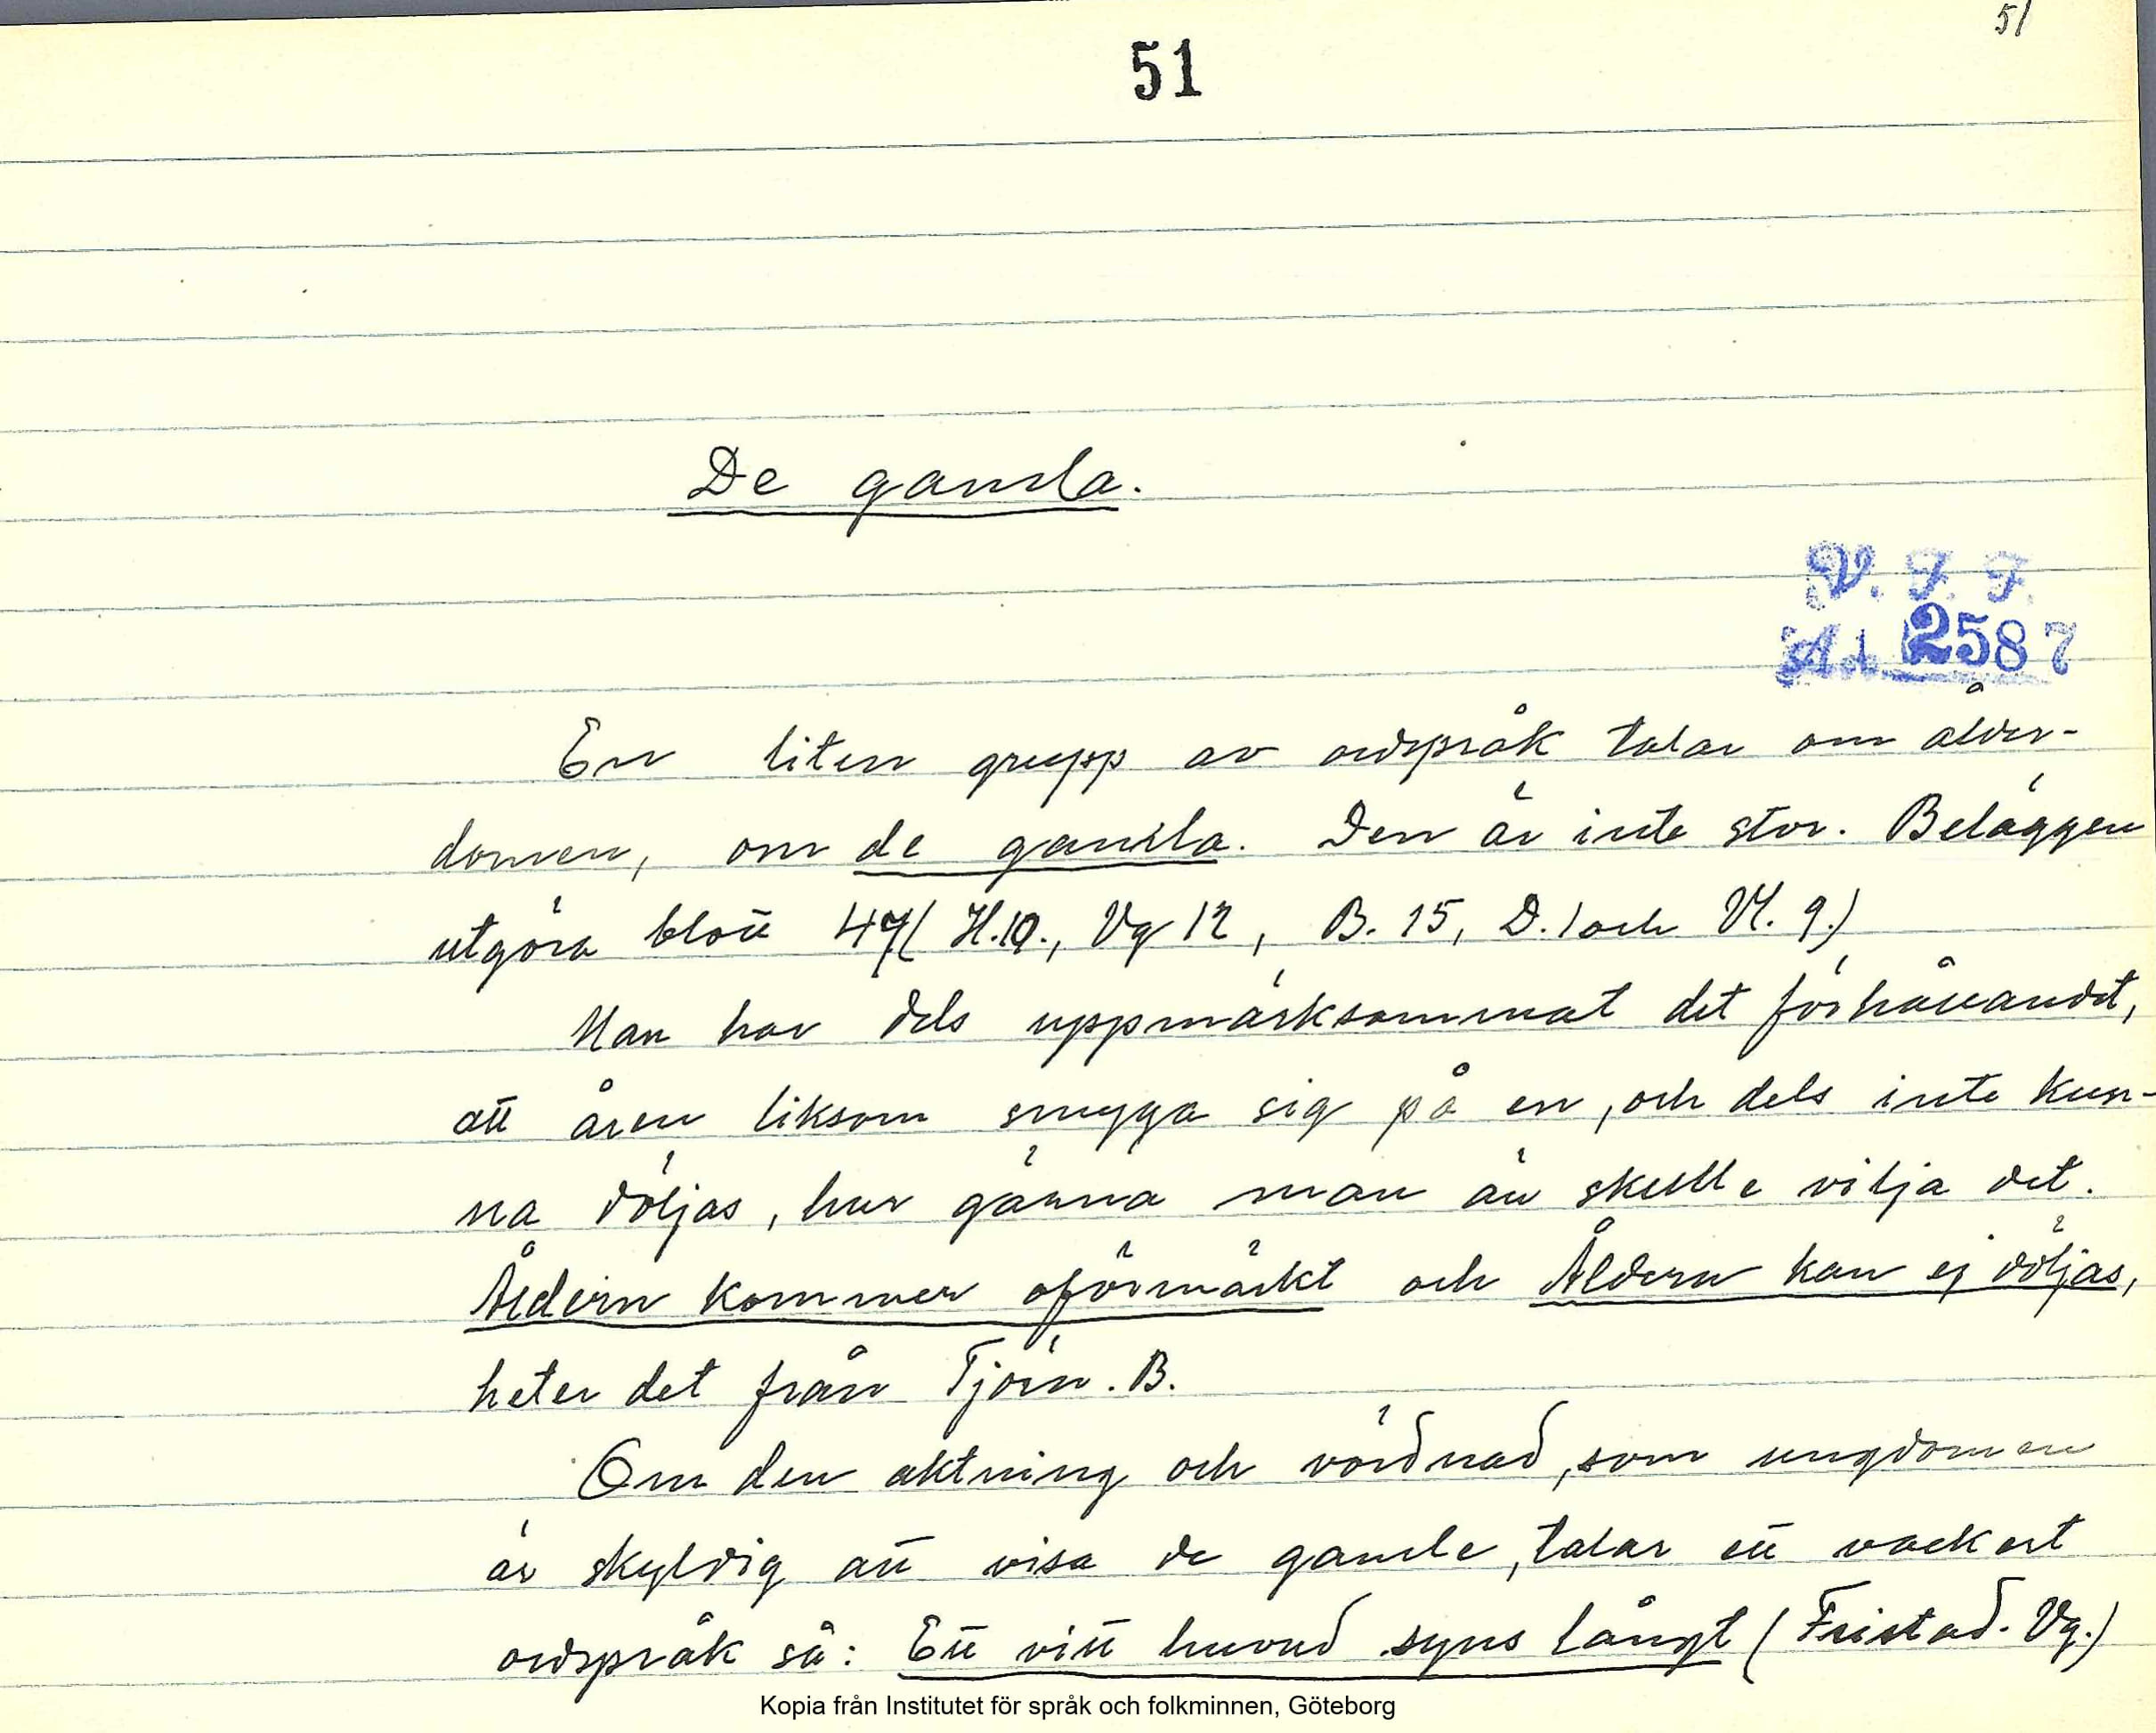 51
51
De gamla.
V. F. F.
Ad. 2587
En liten grupp av ordspråk talar om ålder-
domen, om de gamla. Den är inte stor. Beläggen
utgöra blott 47 ( H. 10., Vg 12, B. 15, D. 1 och Vl. 9.)
Man har dels uppmärksammat det förhållandet,
att åren liksom smyga sig på en, och dels inte kun-
na döljas, hur gärna man än skulle vilja det.
Åldern kommer oförmärkt och Åldern kan ej döljas,
heter det från Tjörn. B.
Om den aktning och vördnad, som ungdomen
är skyldig att visa de gamle, talar ett vackert
ordspråk så: Ett vitt huvud syns långt (Fristad. Vg.)
Kopia från Institutet för språk och folkminnen, Göteborg